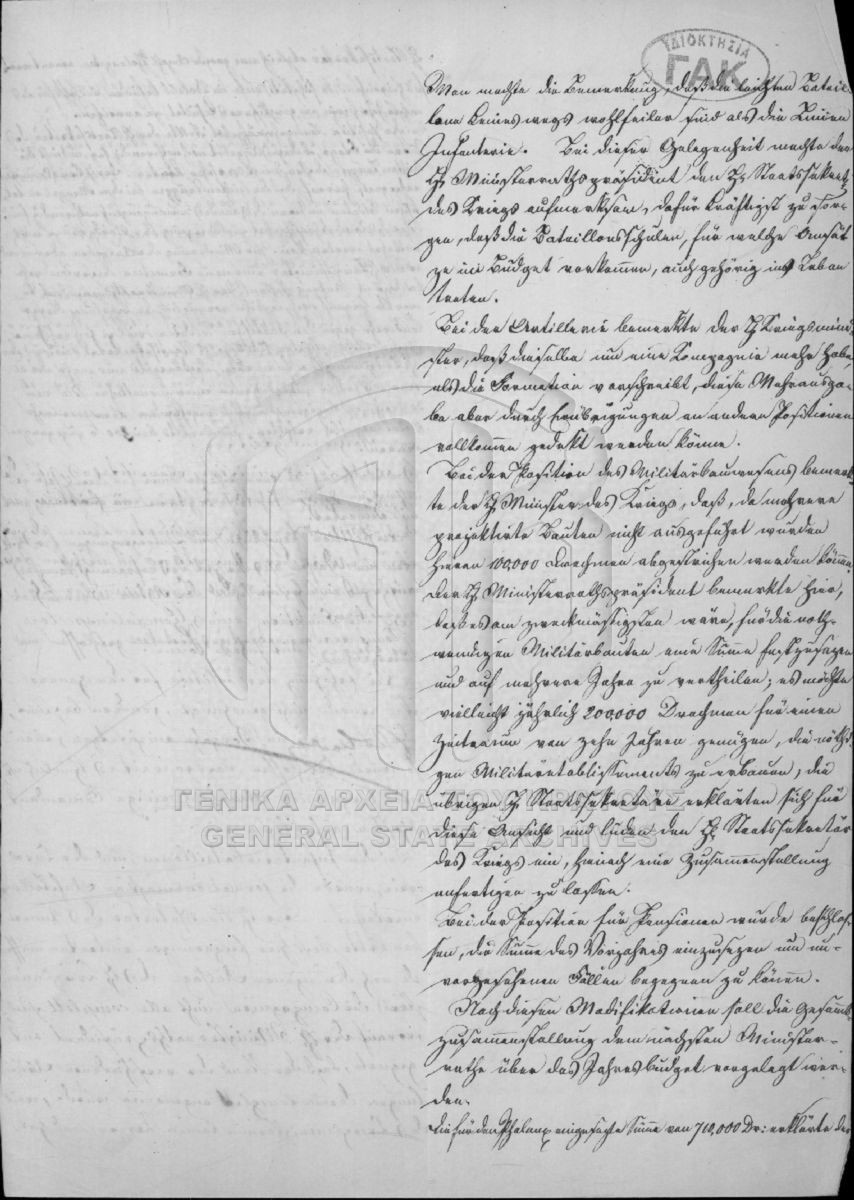 ΙΔΙΟΚΤΗΣΙΑ
ΓΑΚ
Man machte die Bemerkung, daß die leichten Batail-
lone keineswegs wohlfeiler sind als die Linien
Infanterie. Bei dieser Gelegenheit machte der
H. Ministerrathspräsident den H. Staatssekretär
des Kriegs aufmerksam, dafür kräftigst zu sor-
gen, daß die Bataillonsschulen, für welche Ansät-
ze im Budget vorkommen, auch gehörig ins Leben
treten.
Bei der Artillerie bemerkte der H. Kriegsmini-
ster, daß dieselbe um eine Kompagnie mehr habe,
als die Formation vorschreibt, diese Mehrausga-
be aber durch Erübrigungen an andern Positionen
vollkommen gedekt werden könne.
Bei der Position des Militärbauwesens bemerk-
te der H. Minister des Kriegs, daß, da mehrere
projektirte Bauten nicht ausgeführt wurden
hieran 100,000 Drachmen abgestrichen werden können.
Der H. Ministerrathspräsident bemerkte hier,
daß es am zwekmässigsten wäre, für die noth-
wendigen Militärbauten eine Summe festzusezen
und auf mehrere Jahre zu vertheilen; es möchte
vielleicht jährlich 200,000 Drachmen für einen
Zeitraum von zehn Jahren genügen, die nöthi-
gen Militäretablissements zu erbauen, die
übrigen H. Staatssekretäre erklärten sich für
diese Ansicht und luden den H. Staatssekretär
des Kriegs ein, hienach eine Zusammenstellung
anfertigen zu lassen.
Bei der Position für Pensionen wurde beschlos-
sen, die Summe des Vorjahres einzusezen um un-
vorgesehenen Fällen begegnen zu können.
Nach diesen Modifikationen soll die Gesamt-
zusammenstellung dem nächsten Minister-
rathe über das Jahresbudget vorgelegt wer-
den.
Die für den Phalanx eingesezte Summe von 710,000 Dr: erklärte der
ΓΕΝΙΚΑ ΑΡΧΕΙΑ ΤΟΥ ΚΡΑΤΟΥΣ
GENERAL STATE ARCHIVES